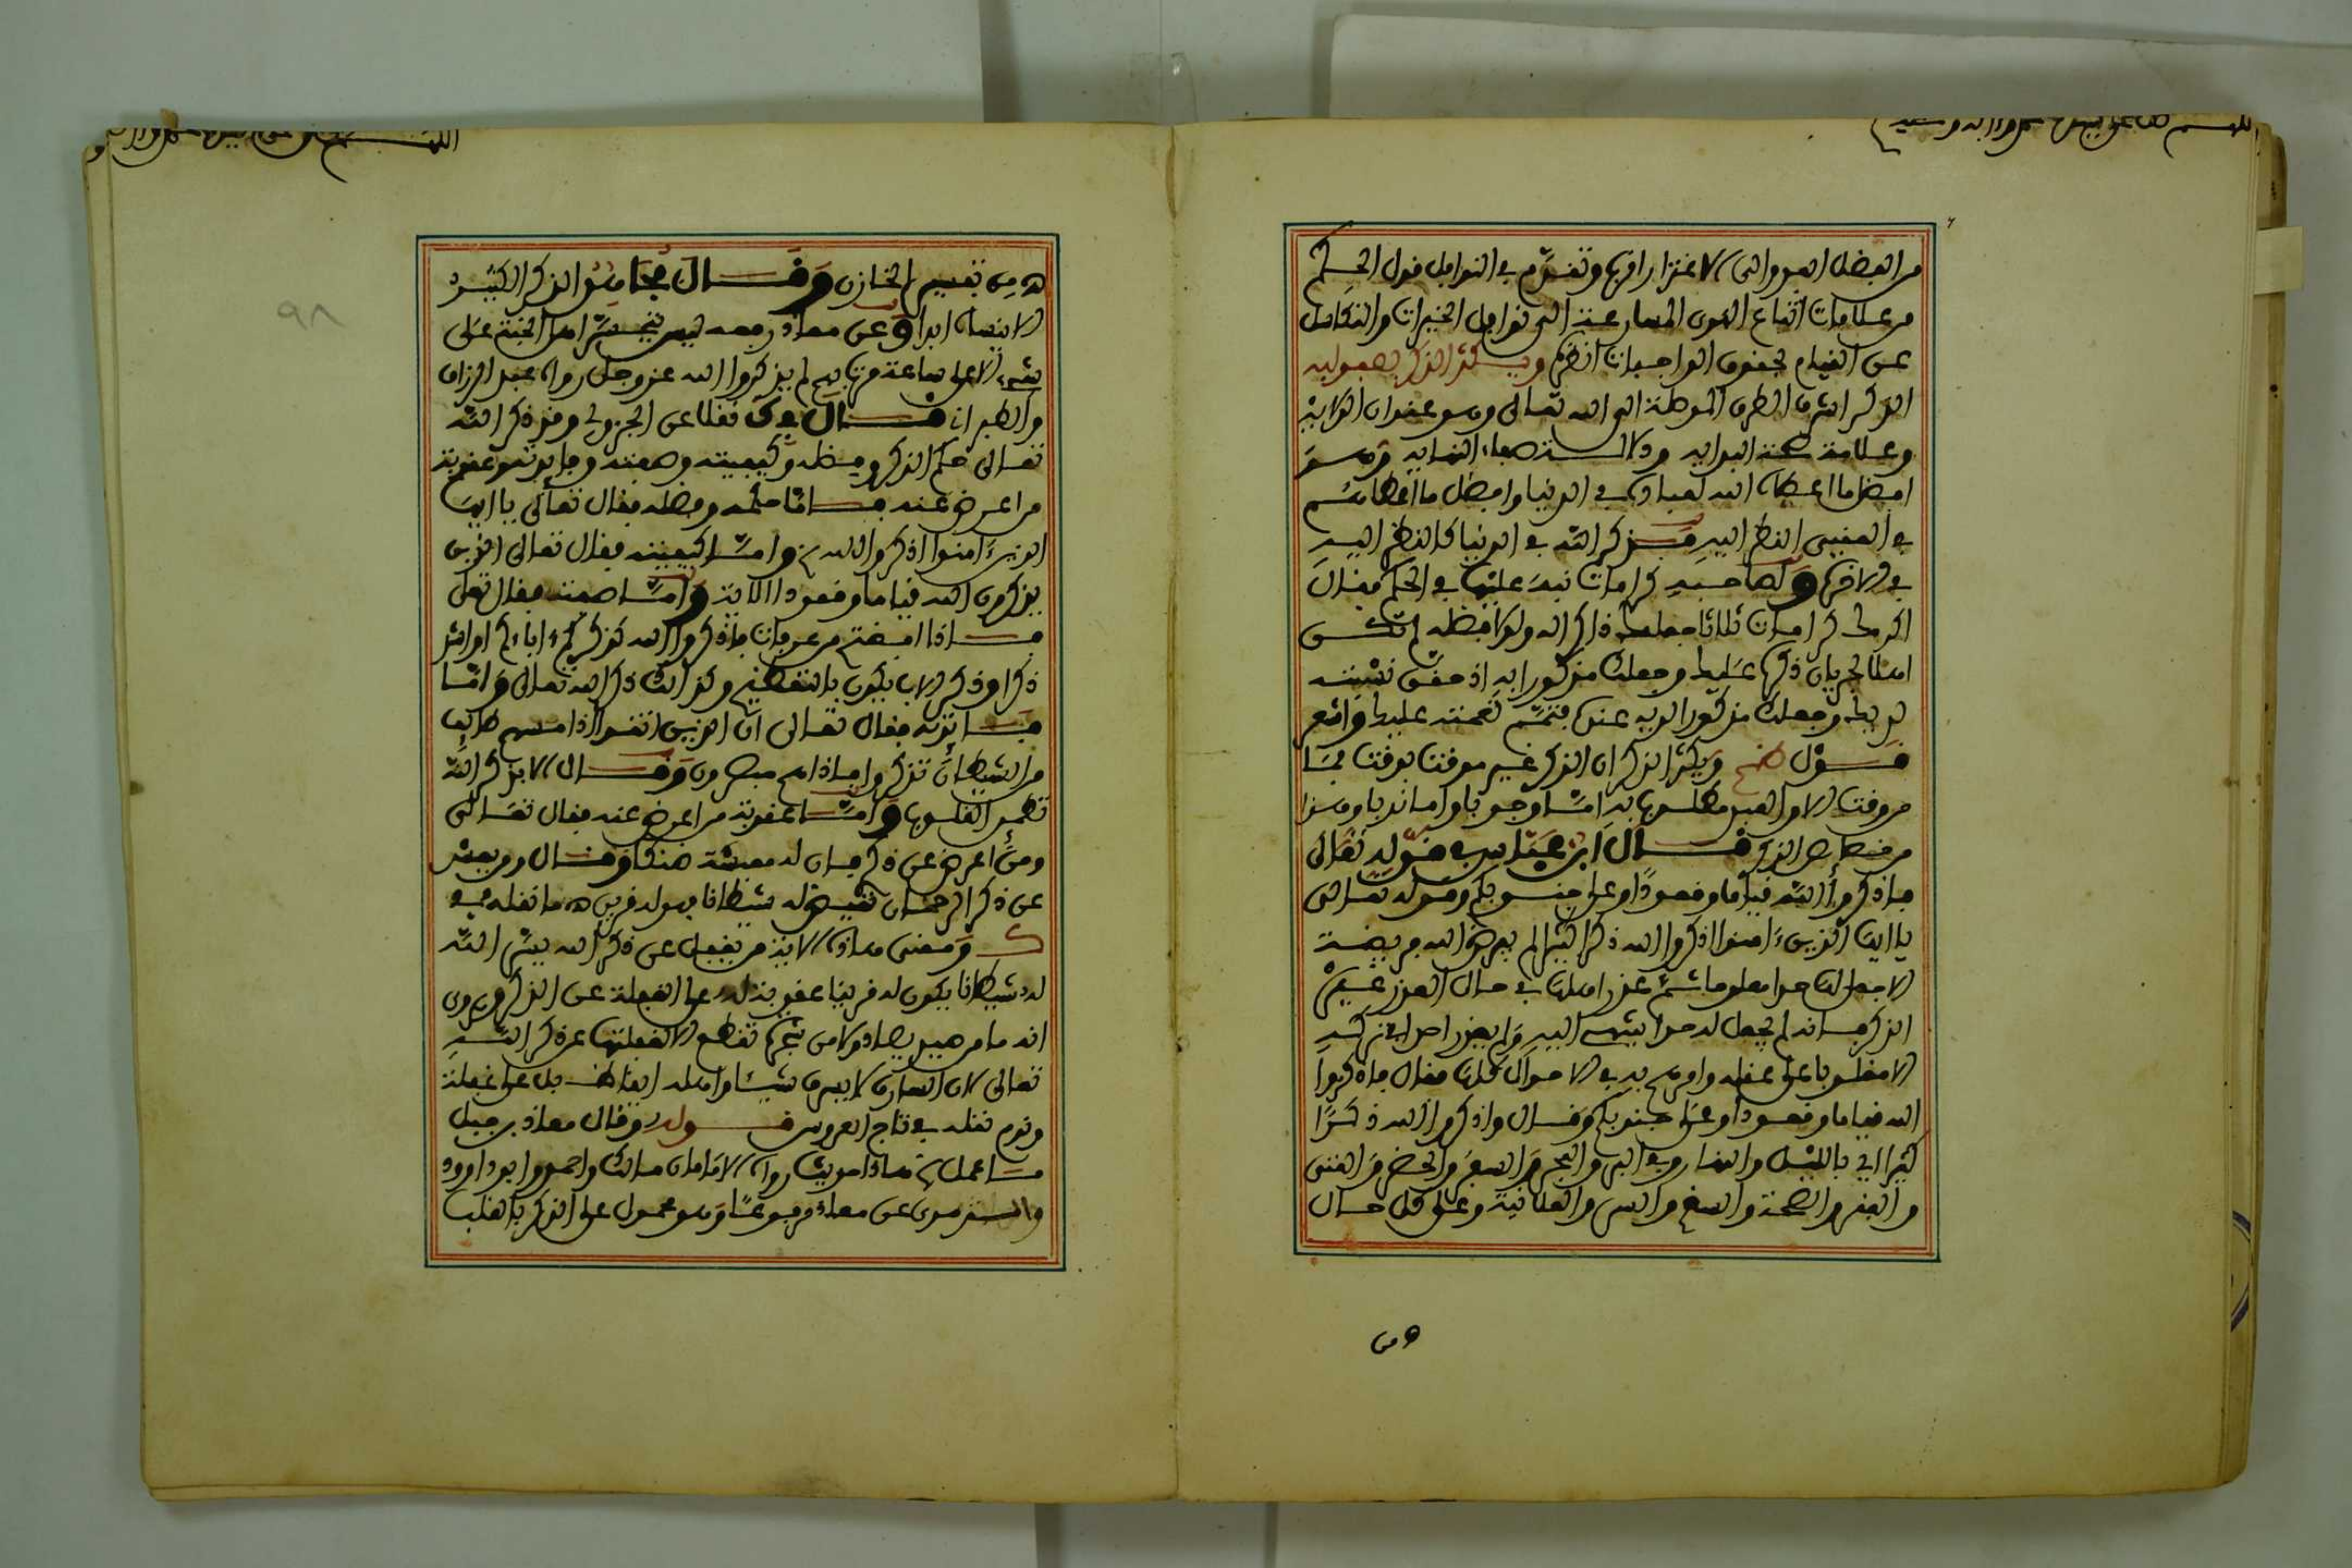 اللهم صل على سيدنا محمد واله وصحبه
من الفضل العدوانى الاغترار افرها وتقدم في النوافل قول الحكم
من علامات اتباع الهوى المسارعة الى نوافل الخيرات والتكاسل
عن القيام بحقوق الواجبات انظره ويكثر الذكر بصفوليه
الذكر اشرف الطرق الموصلة الى الله تعالى وهو عنوان الولاية
وعلامة صحة البداية ودلالة صفاء النهاية وهو
افضل ما اعطاه الله لعباده في الدنيا وافضل ما اعطاهم
في العقبى النظر اليه فذكر الله في الدنيا كالنظر اليه
في الاخرة ولصاحبه كرامات نبه عليها في الحكم فقال
اكرمك كرامات ثلاثا جعلك ذاكرا له ولولا فضله لم تكن
اهلا لجريان ذكره عليك وجعلك مذكورا به اذ حقق نسبته
لديك وجعلك مذكورا لديه عنده فتمم نعمته عليك وانظر
قول ضح ويكثر الذكر ان الذكر غير موقت بوقت فما
من وقت الا والعبد مطلوب به اما وجوبا واما ندبا وهذا
من خصائص الذكر قال ابن عباس في قوله تعالى
فاذكروا الله قياما وقعودا وعلى جنوبكم وقوله تعالى
يا ايها الذين ءامنوا اذكروا الله ذكرا كثيرا لم يفرض الله فريضة
الا جعل لها حدا معلوما ثم عذر اهلها في حال العذر غير
الذكر فانه لم يجعل له حدا ينتهى اليه ولم يعذر احدا في تركه
الا مغلوبا على عقله وامرهم به في الاحوال كلها فقال فاذكروا
الله قياما وقعودا وعلى جنوبكم وقال واذكروا الله ذكرا
كثيرا اي بالليل والنهار وفي البر والبحر والسفر والحضر والغنى
والفقر والصحة والسقم والسر والعلانية وعلى كل حال
ه من
اللهم
٩٨
ه من تفسير الخازن وقال مجاهد الذكر الكثير
الا ينساه ابدا وعن معاذ رفعه ليس يتحسر اهل الجنة على
شيء الا على ساعة مرت بهم لم يذكروا الله عز وجل رواه عبد الرزاق
والطبراني قال نقلا عن الجزولي وقد ذكر الله
تعالى حكم الذكر وفضله وكيفيته وصفته وفائدته وعقوبة
من اعرض عنه فاما حكمه وفضله فقال تعالى يا ايها
الذين ءامنوا اذكروا الله واما كيفيته فقال تعالى الذين
يذكرون الله قياما وقعودا الاية واما صفته فقال تعالى
فاذا افضتم من عرفات فاذكروا الله كذكركم ءاباءكم او اشد
ذكرا وذكر الاب يكون بالتعظيم وكذلك ذكر الله تعالى واما
فائدته فقال تعالى ان الذين اتقوا اذا مسهم طائف
من الشيطان تذكروا فاذا هم مبصرون وقال الا بذكر الله
تطمئن القلوب واما عقوبة من اعرض عنه فقال تعالى
ومن اعرض عن ذكري فان له معيشة ضنكا وقال ومن يعش
عن ذكر الرحمان نقيض له شيطانا فهو له قرين ه ما نقله في
ك ومعنى هاذه الاية من يغفل عن ذكر الله ييسر الله
له شيطانا يكون له قرينا عقوبة له على الغفلة عن الذكر وروي
انه ما من صيد يصاد ولا من شجرة تقطع الا لغفلتها عن ذكر الله
تعالى لان السارق لا يسرق شيئا واهله ايقاظ بل على غفلة
ونوم نقله في تاج العروس قوله وقال معاذ بن جبل
ما عمل هاذا الحديث رواه الامامان مالك واحمد وابو داوود
والترمذي عن معاذ مرفوعا وهو محمول على الذكر بالقلب